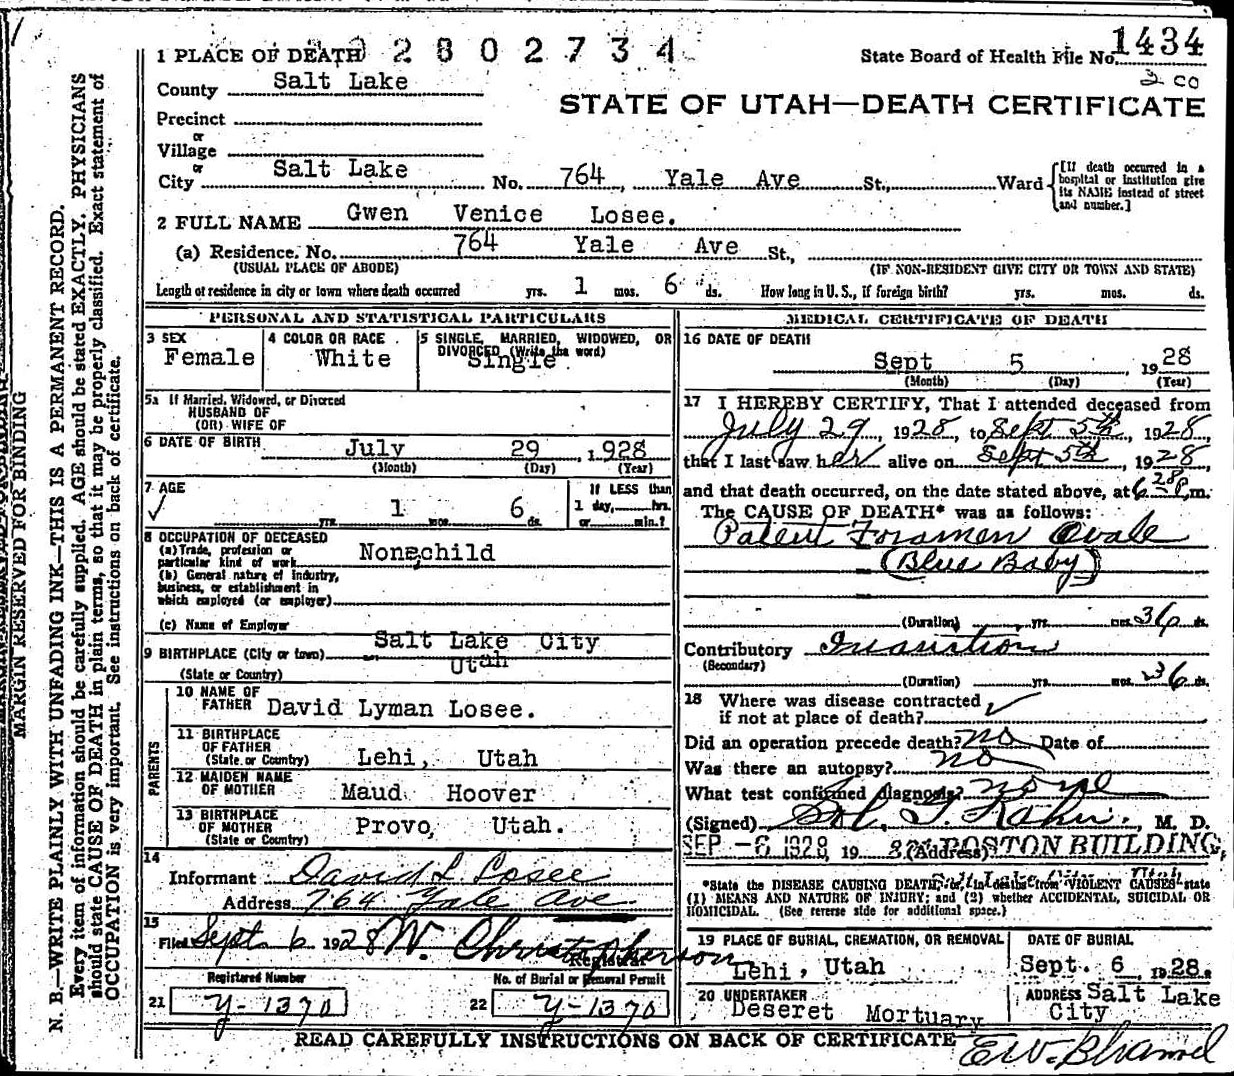 2802734
1 PLACE OF DEATH
State Board of Health File No. 1434
County Salt Lake
STATE OF UTAH—DEATH CERTIFICATE
Precinct
or
Village
or
City Salt Lake No. 764, Yale Ave St., Ward
[If death occurred in a
hospital or institution give
its NAME instead of street
and number.]
2 FULL NAME Gwen Venice Losee.
(a) Residence, No. 764 Yale Ave St.,
(USUAL PLACE OF ABODE) (IF NON-RESIDENT GIVE CITY OR TOWN AND STATE)
Length of residence in city or town where death occurred yrs. 1 mos. 6 ds. How long in U. S., if foreign birth? yrs. mos. ds.
PERSONAL AND STATISTICAL PARTICULARS
3 SEX
Female
4 COLOR OR RACE
White
5 SINGLE, MARRIED, WIDOWED, OR
DIVORCED (Write the word)
Single
5a If Married, Widowed, or Divorced
HUSBAND OF
(OR) WIFE OF
6 DATE OF BIRTH July 29, 1928
(Month) (Day) (Year)
7 AGE
1 6
yrs. mos. ds.
If LESS than
1 day, hrs.
or min.?
8 OCCUPATION OF DECEASED
(a) Trade, profession or
particular kind of work None,child
(b) General nature of industry,
business, or establishment in
which employed (or employer)
(c) Name of Employer
9 BIRTHPLACE (City or town) Salt Lake City
(State or Country) Utah
PARENTS
10 NAME OF
FATHER David Lyman Losee.
11 BIRTHPLACE
OF FATHER
(State or Country) Lehi, Utah
12 MAIDEN NAME
OF MOTHER Maud Hoover
13 BIRTHPLACE
OF MOTHER
(State or Country) Provo, Utah.
14
Informant David L Losee
Address 764 Yale Ave
15
Filed Sept. 6 1928 W. Christopherson
Registrar
Registered Number
21 Y-1370
No. of Burial or Removal Permit
22 Y-1370
MEDICAL CERTIFICATE OF DEATH
16 DATE OF DEATH
Sept 5 1928
(Month) (Day) (Year)
17 I HEREBY CERTIFY, That I attended deceased from
July 29, 1928, to Sept 5th, 1928,
that I last saw her alive on Sept 5th, 1928,
and that death occurred, on the date stated above, at 6 28 p.m.
The CAUSE OF DEATH* was as follows:
Patent Foramen Ovale
(Blue Baby)
(Duration) yrs. mos. 36 ds.
Contributory Inanition
(Secondary)
(Duration) yrs. mos. 36 ds.
18 Where was disease contracted
if not at place of death?
Did an operation precede death? no Date of
Was there an autopsy? no
What test confirmed diagnosis? none
(Signed) Sol. G. Kahn., M. D.
SEP -6 1928, 19 (Address) BOSTON BUILDING,
Salt Lake City Utah
*State the DISEASE CAUSING DEATH, or, in deaths from VIOLENT CAUSES state
(1) MEANS AND NATURE OF INJURY; and (2) whether ACCIDENTAL, SUICIDAL OR
HOMICIDAL. (See reverse side for additional space.)
19 PLACE OF BURIAL, CREMATION, OR REMOVAL
Lehi, Utah
DATE OF BURIAL
Sept. 6, 1928.
20 UNDERTAKER
Deseret Mortuary
ADDRESS Salt Lake
City
READ CAREFULLY INSTRUCTIONS ON BACK OF CERTIFICATE
MARGIN RESERVED FOR BINDING
N. B.—WRITE PLAINLY WITH UNFADING INK—THIS IS A PERMANENT RECORD.
Every item of information should be carefully supplied. AGE should be stated EXACTLY. PHYSICIANS
should state CAUSE OF DEATH in plain terms, so that it may be properly classified. Exact statement of
OCCUPATION is very important. See instructions on back of certificate.